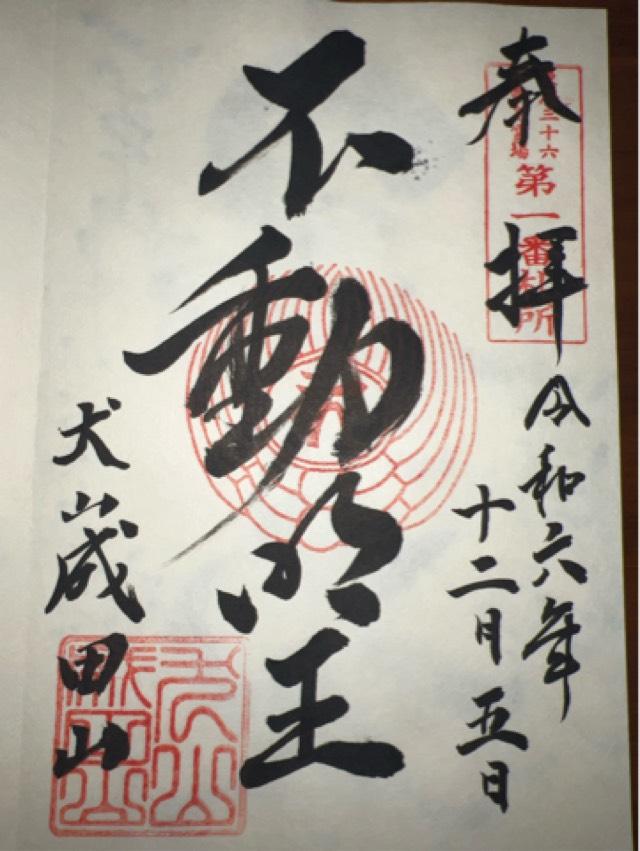 奉拝
三十六
第一番札所
令和六年
十二月五日
不動明王
犬山成田山